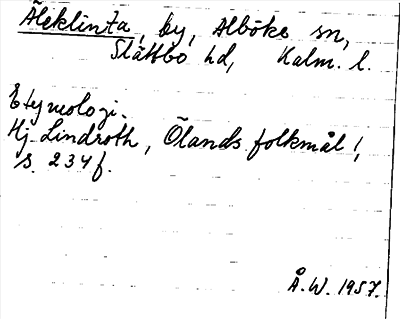 Äleklinta, by, Alböke sn,
Slättbo hd, Kalm. l.
Etymologi.
Hj. Lindroth, Ölands folkmål 1,
s. 234 f.
Å. W. 1957.